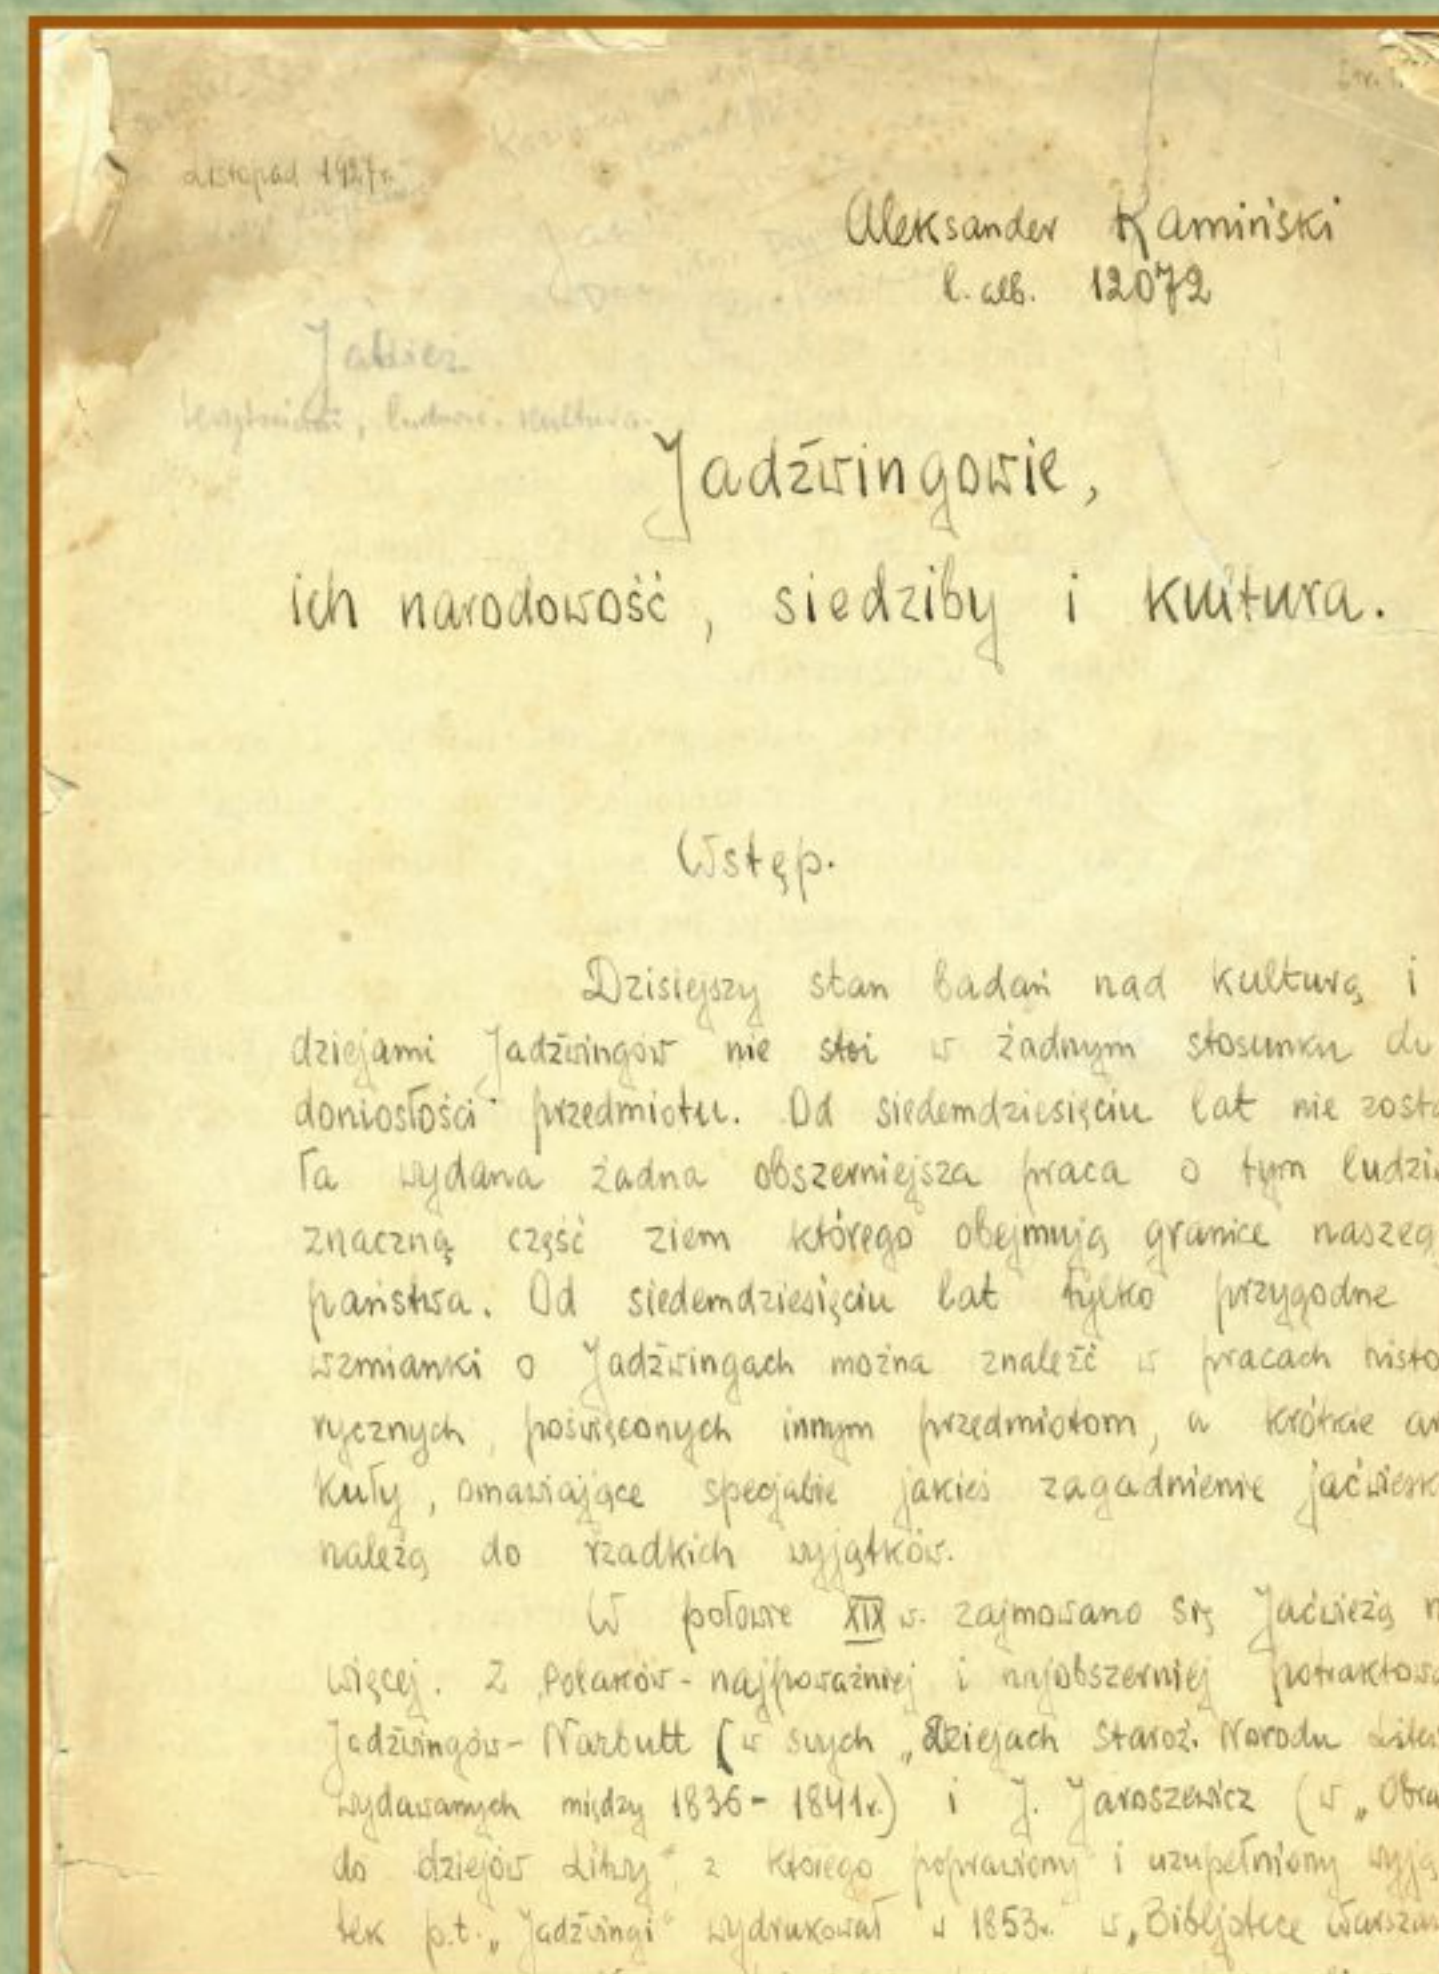 Str. 1.
Listopad 1927 r.
Aleksander Kamiński
l. alb. 12072
Jaćwież
ludność. Kultura.
Jadźwingowie,
ich narodowość, siedziby i kultura.
Wstęp.
Dzisiejszy stan badań nad kulturą i
dziejami Jadźwingów nie stoi w żadnym stosunku do
doniosłości przedmiotu. Od siedemdziesięciu lat nie zosta
ła wydana żadna obszerniejsza praca o tym ludzi
znaczną część ziem którego obejmują granice naszeg
państwa. Od siedemdziesięciu lat tylko przygodne
wzmianki o Jadźwingach można znaleźć w pracach histo
rycznych, poświęconych innym przedmiotom, a krótkie ar
kuły, omawiające specjalnie jakieś zagadnienie jaćwiesk
należą do rzadkich wyjątków.
W połowie XIX w. zajmowano się Jaćwieżą n
więcej. Z Polaków - najpoważniej i najobszerniej potraktowa
Jadźwingów - Narbutt (w swych „Dziejach Staroż. Narodu Litew
wydawanych między 1836 - 1841 r.) i J. Jaroszewicz (w „Obra
do dziejów Litwy" z którego poprawiony i uzupełniony wyją
tek p.t. „Jadźwingi" wydrukował w 1853 r. w „Bibljotece Warszaw